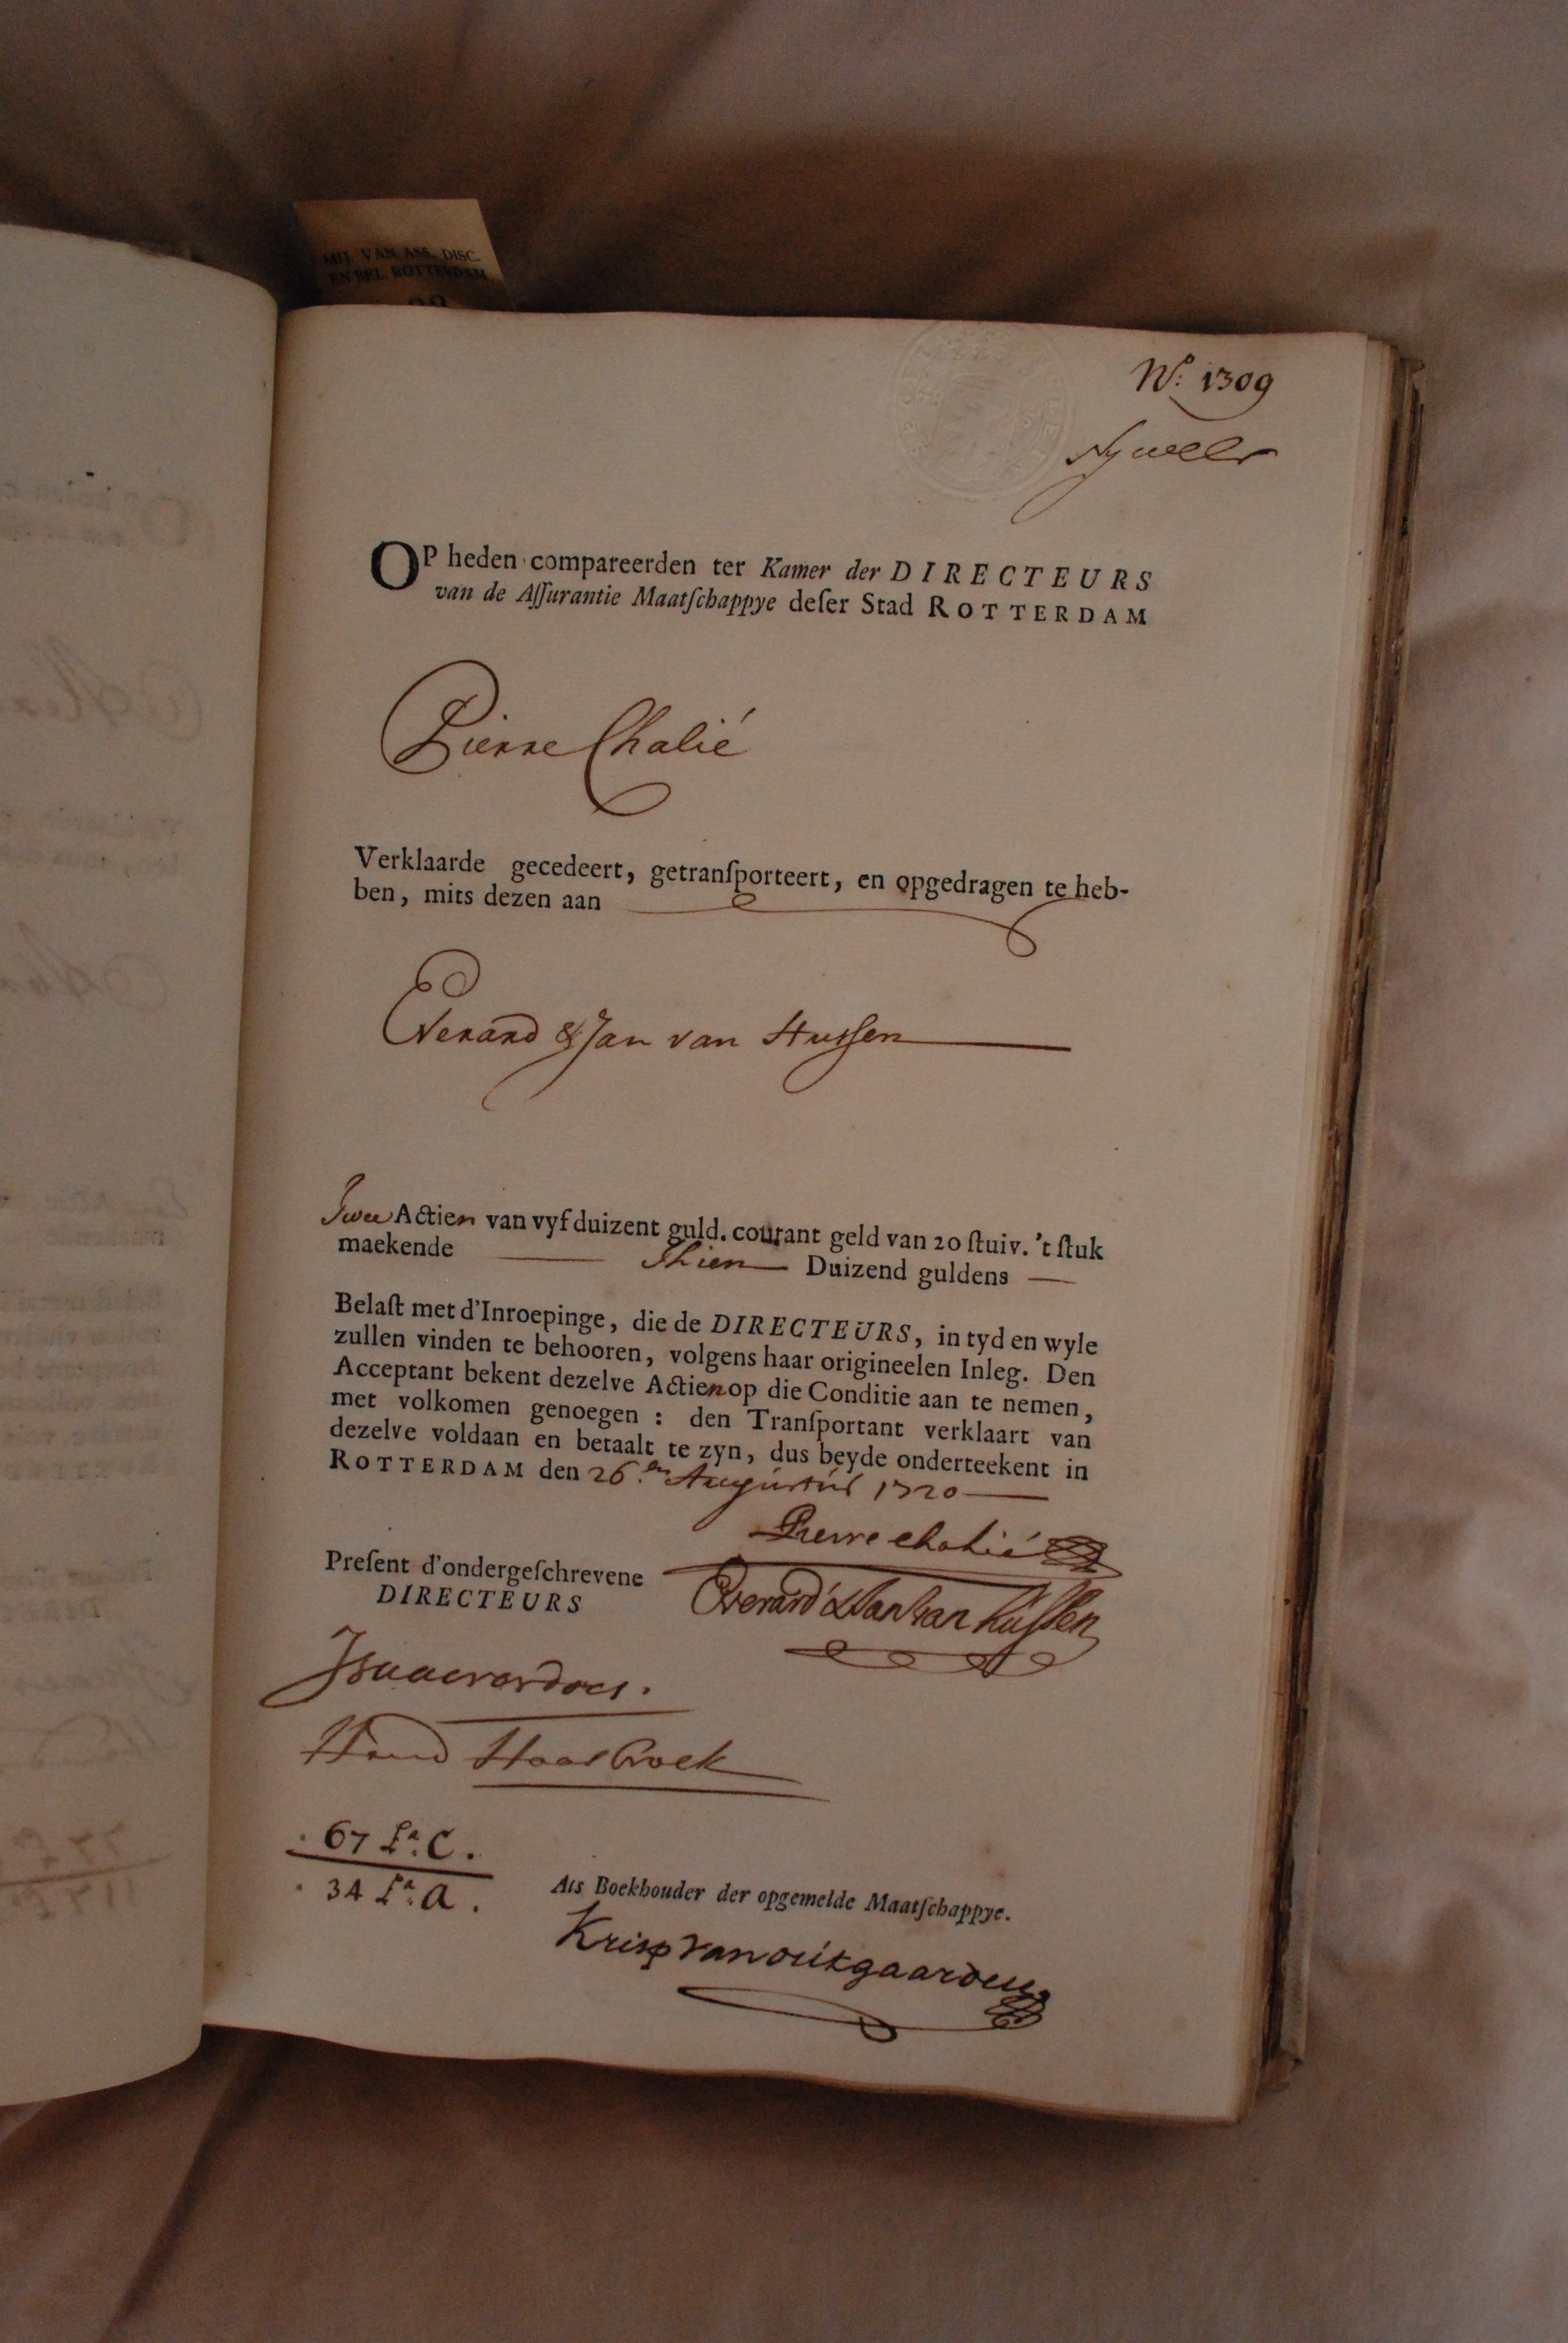 MIJ. VAN ASS. DISC.
EN BEL. ROTTERDAM
No: 1309
OP heden compareerden ter Kamer der DIRECTEURS
van de Aſſurantie Maatſchappye deſer Stad ROTTERDAM
Pierre Chalié
Verklaarde gecedeert, getranſporteert, en opgedragen te heb-
ben, mits dezen aan
Everard & Jan van Hussen
Twee Actien van vyf duizent guld. courant geld van 20 ſtuiv. 't ſtuk
maekende Thien Duizend guldens
Belaſt met d'Inroepinge, die de DIRECTEURS, in tyd en wyle
zullen vinden te behooren, volgens haar origineelen Inleg. Den
Acceptant bekent dezelve Actien op die Conditie aan te nemen,
met volkomen genoegen : den Tranſportant verklaart van
dezelve voldaan en betaalt te zyn, dus beyde onderteekent in
ROTTERDAM den 26.en Augustus 1720
Pierre Chalié
Preſent d'ondergeſchrevene
DIRECTEURS
Everard & Jan van Hussen
Hasbroek
67 La. C.
34 La. A.
Als Boekhouder der opgemelde Maatſchappye.
Krisp van outgaarden